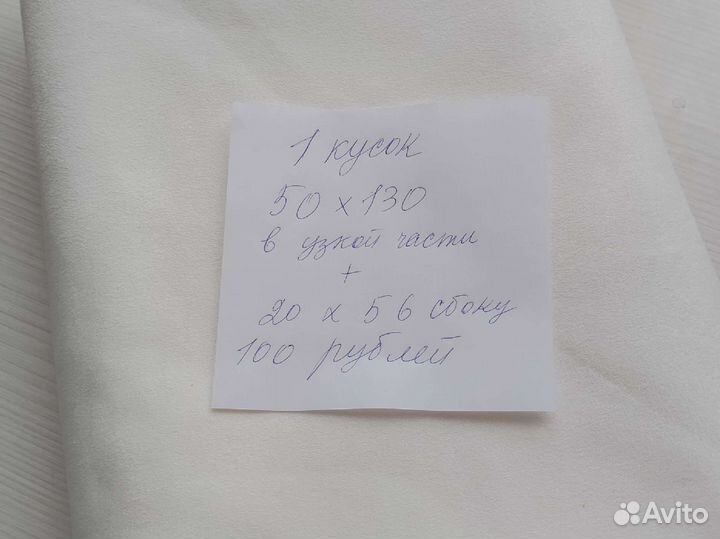 1 кусок
50 х 130
в узкой части
+
20 х 56 сбоку
100 рублей
Avito